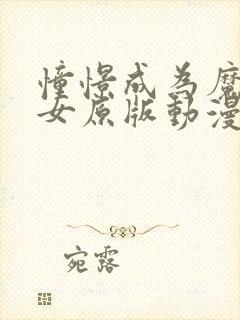 憧憬成為魔
女原版動漫
宛露